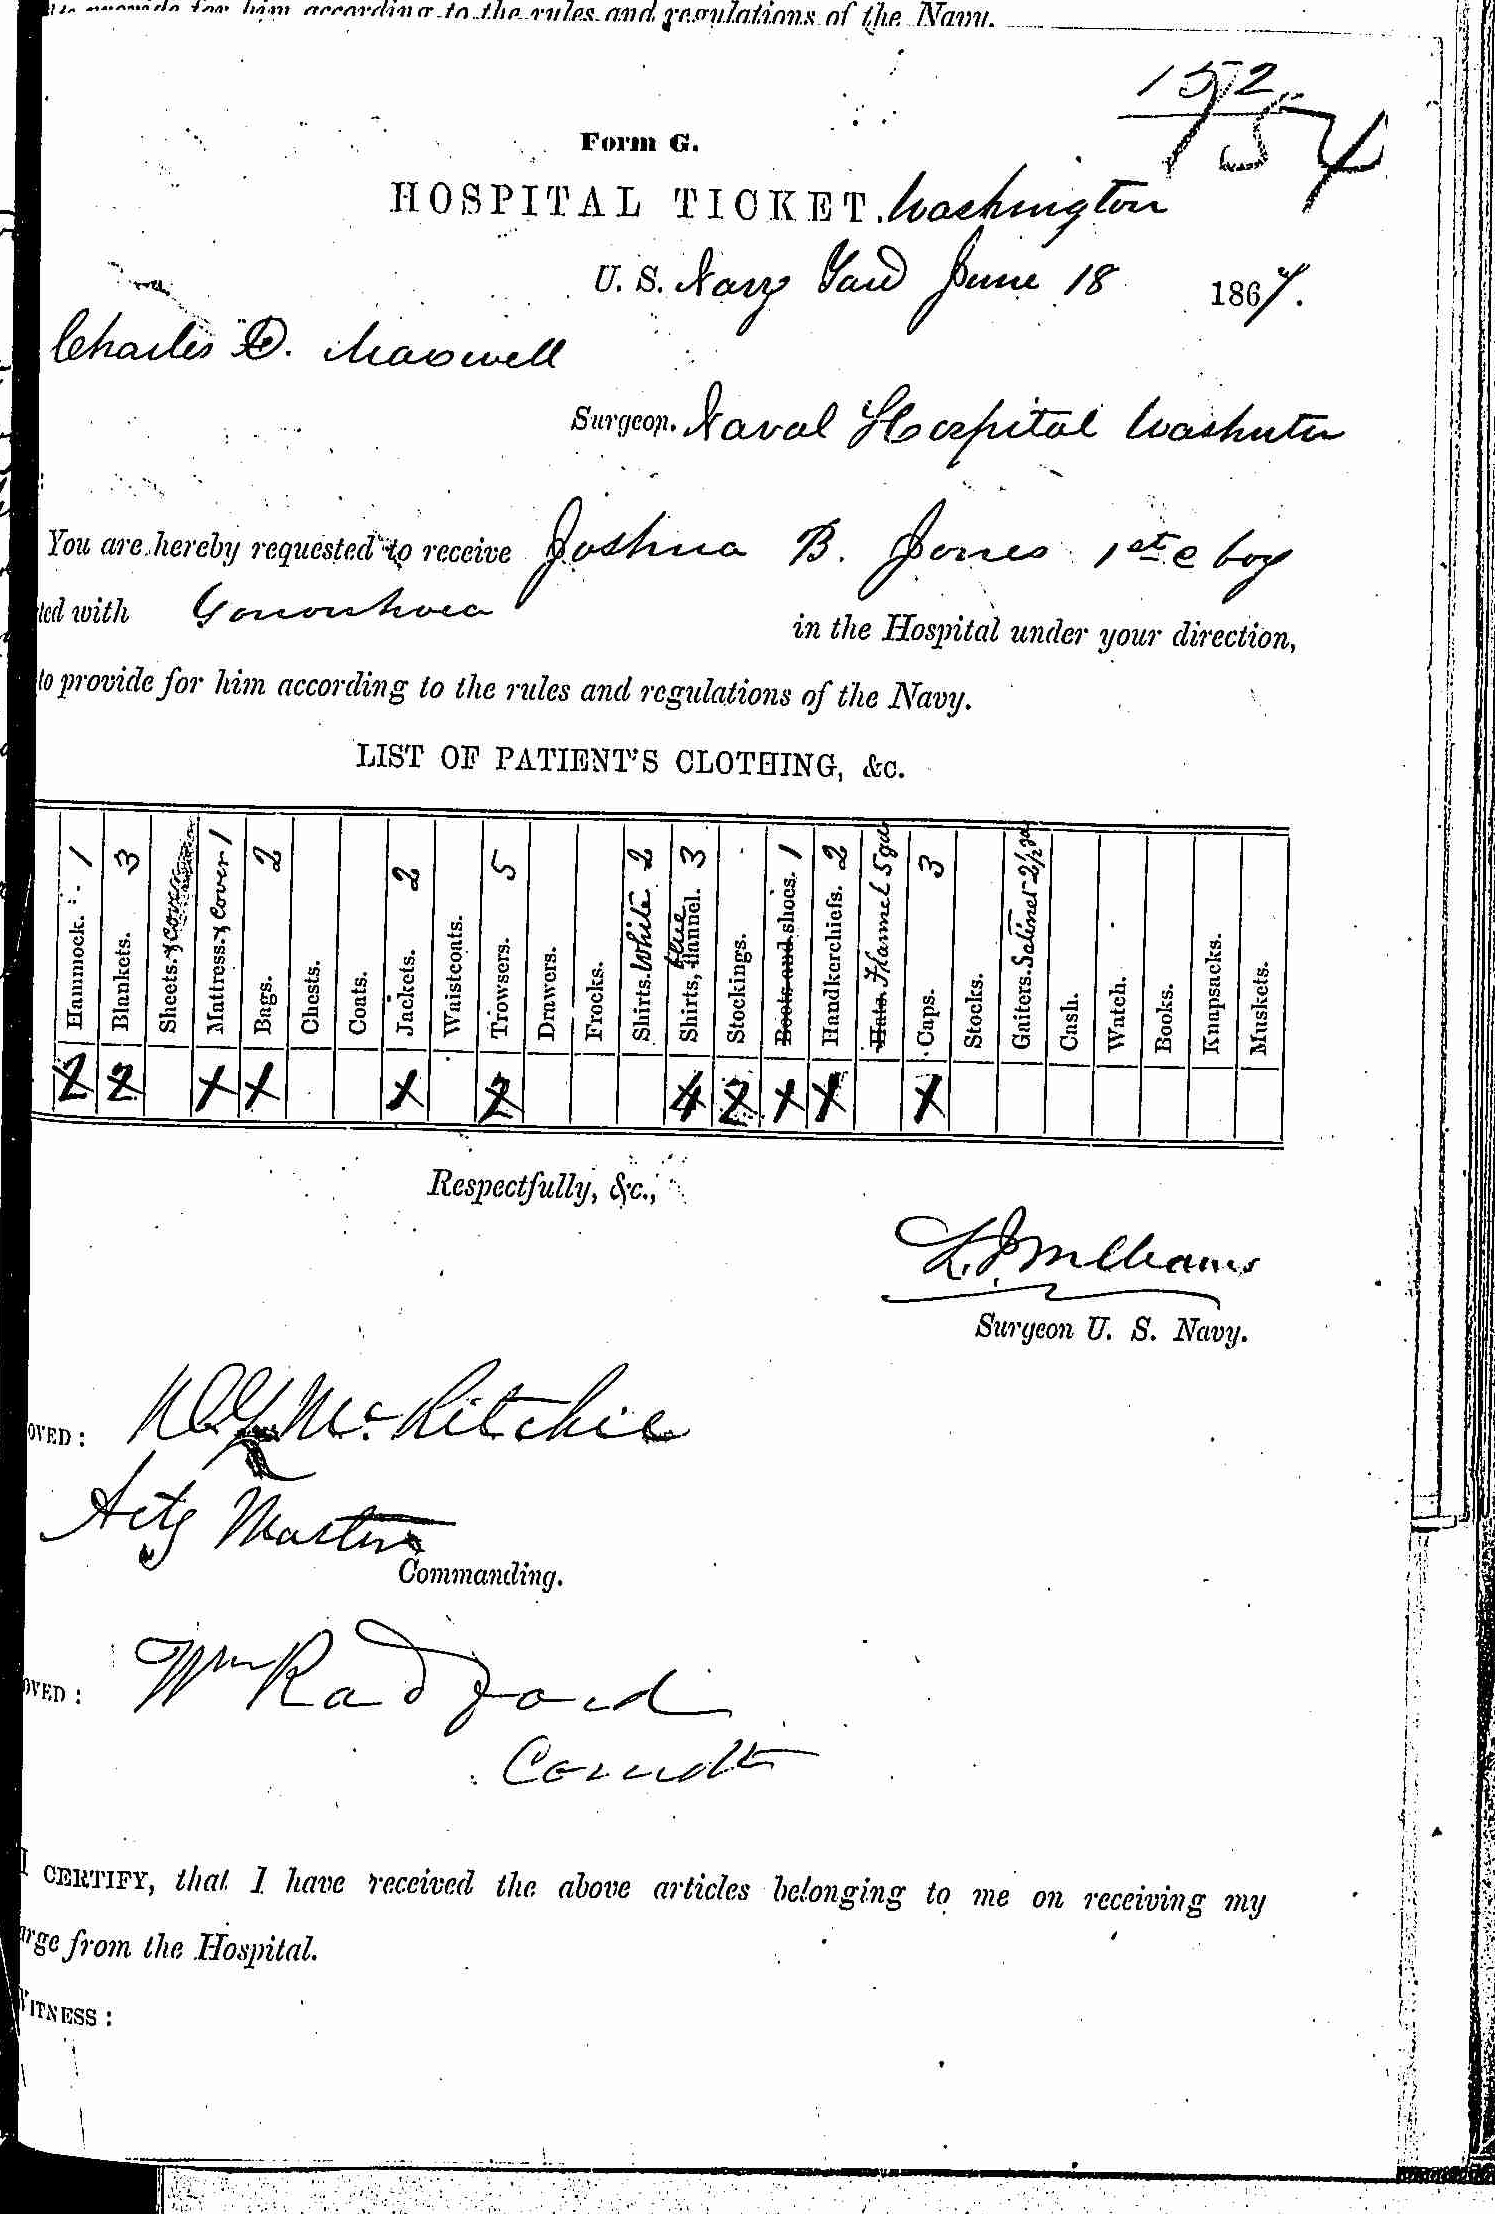 to provide for him according to the rules and regulations of the Navy.
152
154
Form G.
HOSPITAL TICKET. Washington
U. S. Navy Yard June 18 1867.
Charles D. Maxwell
Surgeon. Naval Hospital
You are hereby requested to receive Joshua B. Jones 1st c boy
ted with Gonorrhoea in the Hospital under your direction,
to provide for him according to the rules and regulations of the Navy.
LIST OF PATIENT'S CLOTHING, &c.
Hammock. 1
Blankets. 3
Sheets. & Cover
Mattress. & Cover 1
Bags. 2
Chests.
Coats.
Jackets. 2
Waistcoats.
Trowsers. 5
Drawers.
Frocks.
Shirts. White 2
Shirts, Blue flannel. 3
Stockings.
Boots and shoes. 1
Handkerchiefs. 2
Hats. Flannel 5 yds
Caps. 3
Stocks.
Gaiters. Satinet 2½ yds
Cash.
Watch.
Books.
Knapsacks.
Muskets.
2 2 X X X 2 4 2 X X X
Respectfully, &c.,
Surgeon U. S. Navy.
OVED: McRitchie
Actg Master
Commanding.
OVED: Wm Radford
Comdt
I CERTIFY, that I have received the above articles belonging to me on receiving my
arge from the Hospital.
WITNESS: